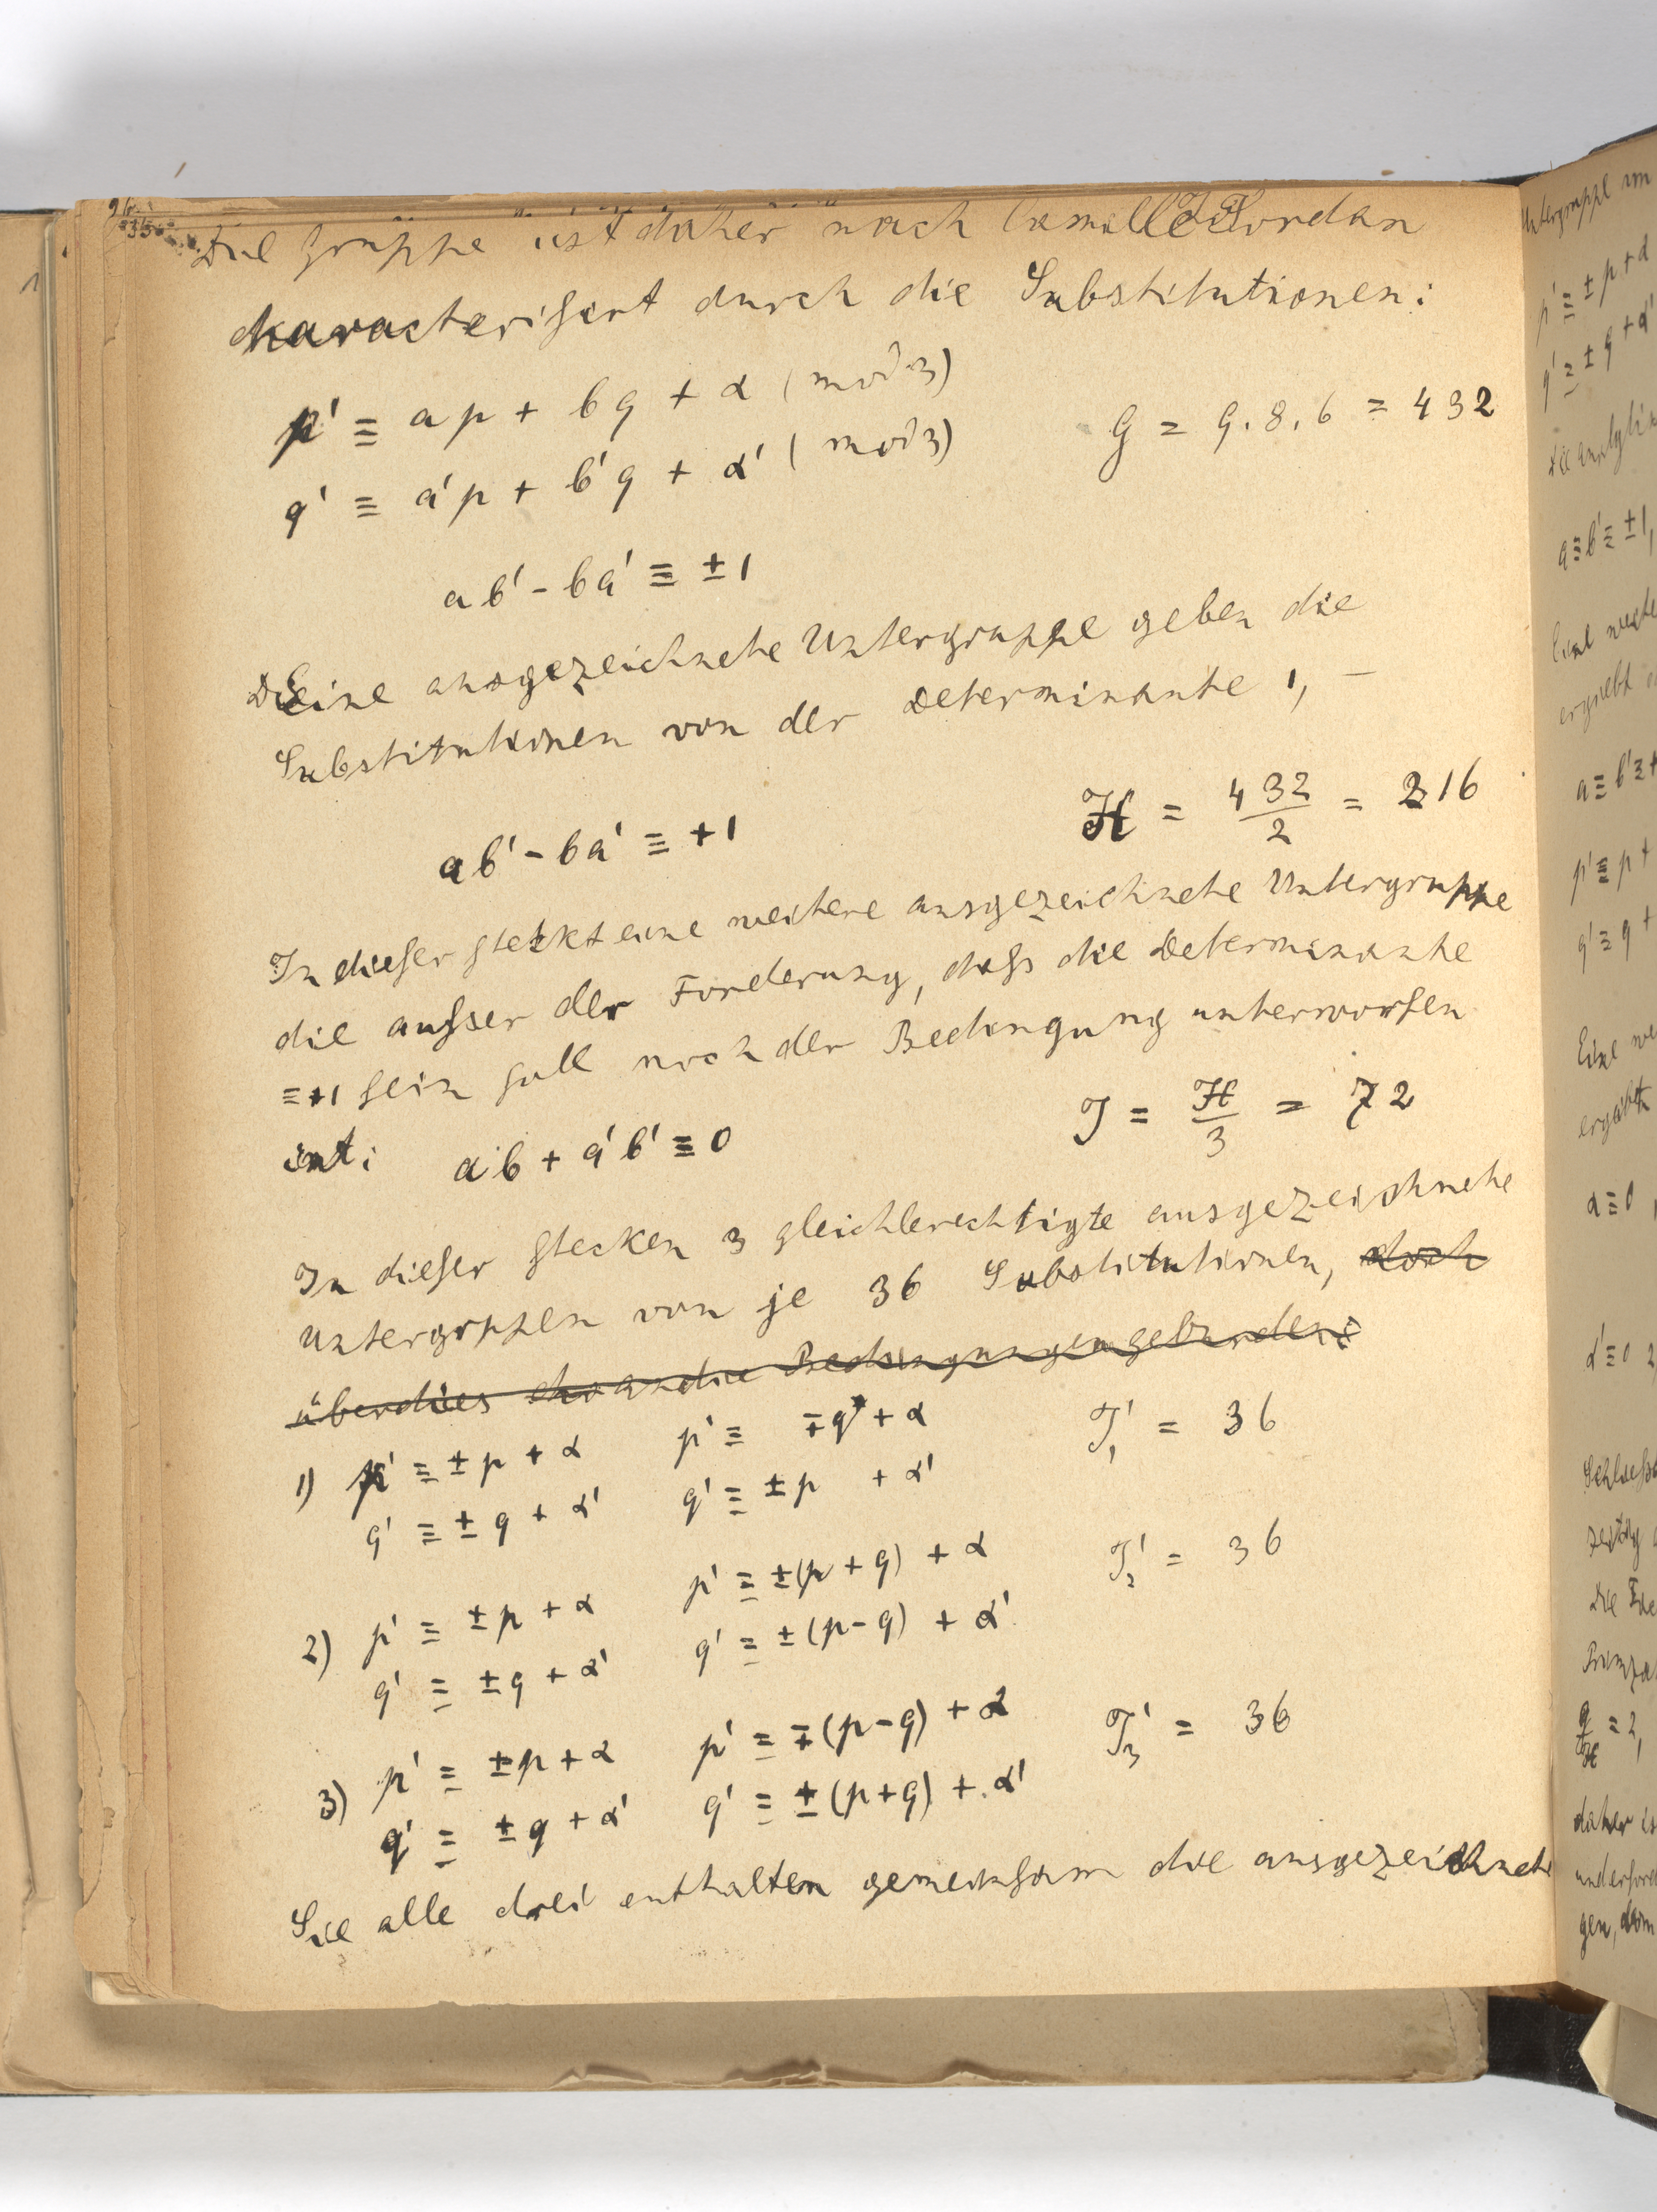 Die Gruppe ist daher nach Camille Jordan
characterisirt durch die Substitutionen:
p' ≡ ap + bq + α (mod 3)
q' ≡ a'p + b'q + α' (mod 3)
G = 9.8.6 = 432
ab' - ba' ≡ ±1
Eine ausgezeichnete Untergruppe geben die
Substitutionen von der Determinante 1, –
ab' - ba' ≡ +1
H = 432/2 = 216
In dieser steckt eine weitere ausgezeichnete Untergruppe
die ausser der Forderung, dass die Determinante
≡+1 sein soll noch der Bedingung unterworfen
ist: ab + a'b' ≡ 0
J = H/3 = 72
In dieser stecken 3 gleichberechtigte ausgezeichnete
Untergrppen von je 36 Substitutionen, doch
überdies
1) p' ≡ ±p + α p' ≡ ∓q + α J'₁ = 36
q' ≡ ±q + α' q' ≡ ±p + α'
2) p' ≡ ±p + α p' ≡ ±(p + q) + α J'₂ = 36
q' ≡ ±q + α' q' ≡ ±(p - q) + α'
3) p' ≡ ±p + α p' ≡ ∓(p - q) + α J'₃ = 36
q' ≡ ±q + α' q' ≡ ±(p + q) + α'
Sie alle drei enthalten gemeinsam die ausgezeichnete
Untergruppe
p' ≡ ±p + α
q' ≡ ±q + α'
a ≡ b' ≡ ±1,
Eine
ergiebt
p' ≡ p +
q' ≡ q +
Eine
α ≡ 0
α' ≡ 0
Die
= 2,
daher